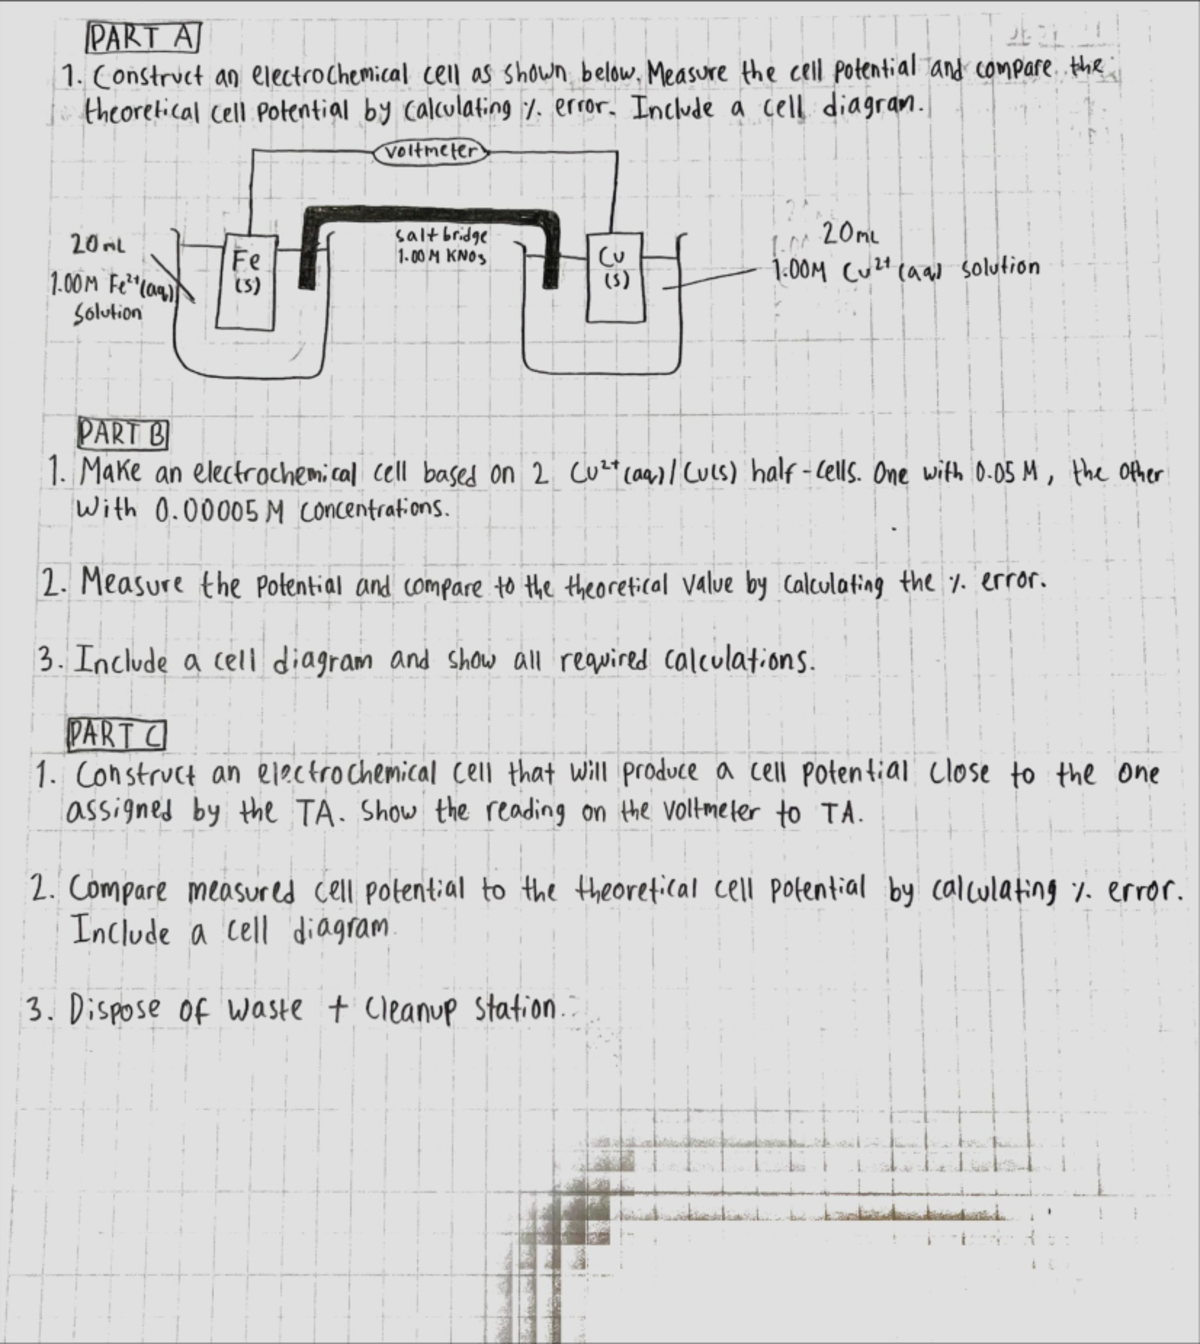 PART A
1. Construct an electrochemical cell as shown below. Measure the cell potential and compare the
theoretical cell potential by calculating % error. Include a cell diagram.
voltmeter
20mL
1.00M Fe²⁺(aq)
solution
Fe
(s)
salt bridge
1.00M KNO₃
Cu
(s)
20mL
1.00M Cu²⁺(aq) solution
PART B
1. Make an electrochemical cell based on 2 Cu²⁺(aq)/Cu(s) half-cells. One with 0.05M, the other
with 0.00005M concentrations.
2. Measure the potential and compare to the theoretical value by calculating the % error.
3. Include a cell diagram and show all required calculations.
PART C
1. Construct an electrochemical cell that will produce a cell potential close to the one
assigned by the TA. Show the reading on the voltmeter to TA.
2. Compare measured cell potential to the theoretical cell potential by calculating % error.
Include a cell diagram
3. Dispose of waste + cleanup station.